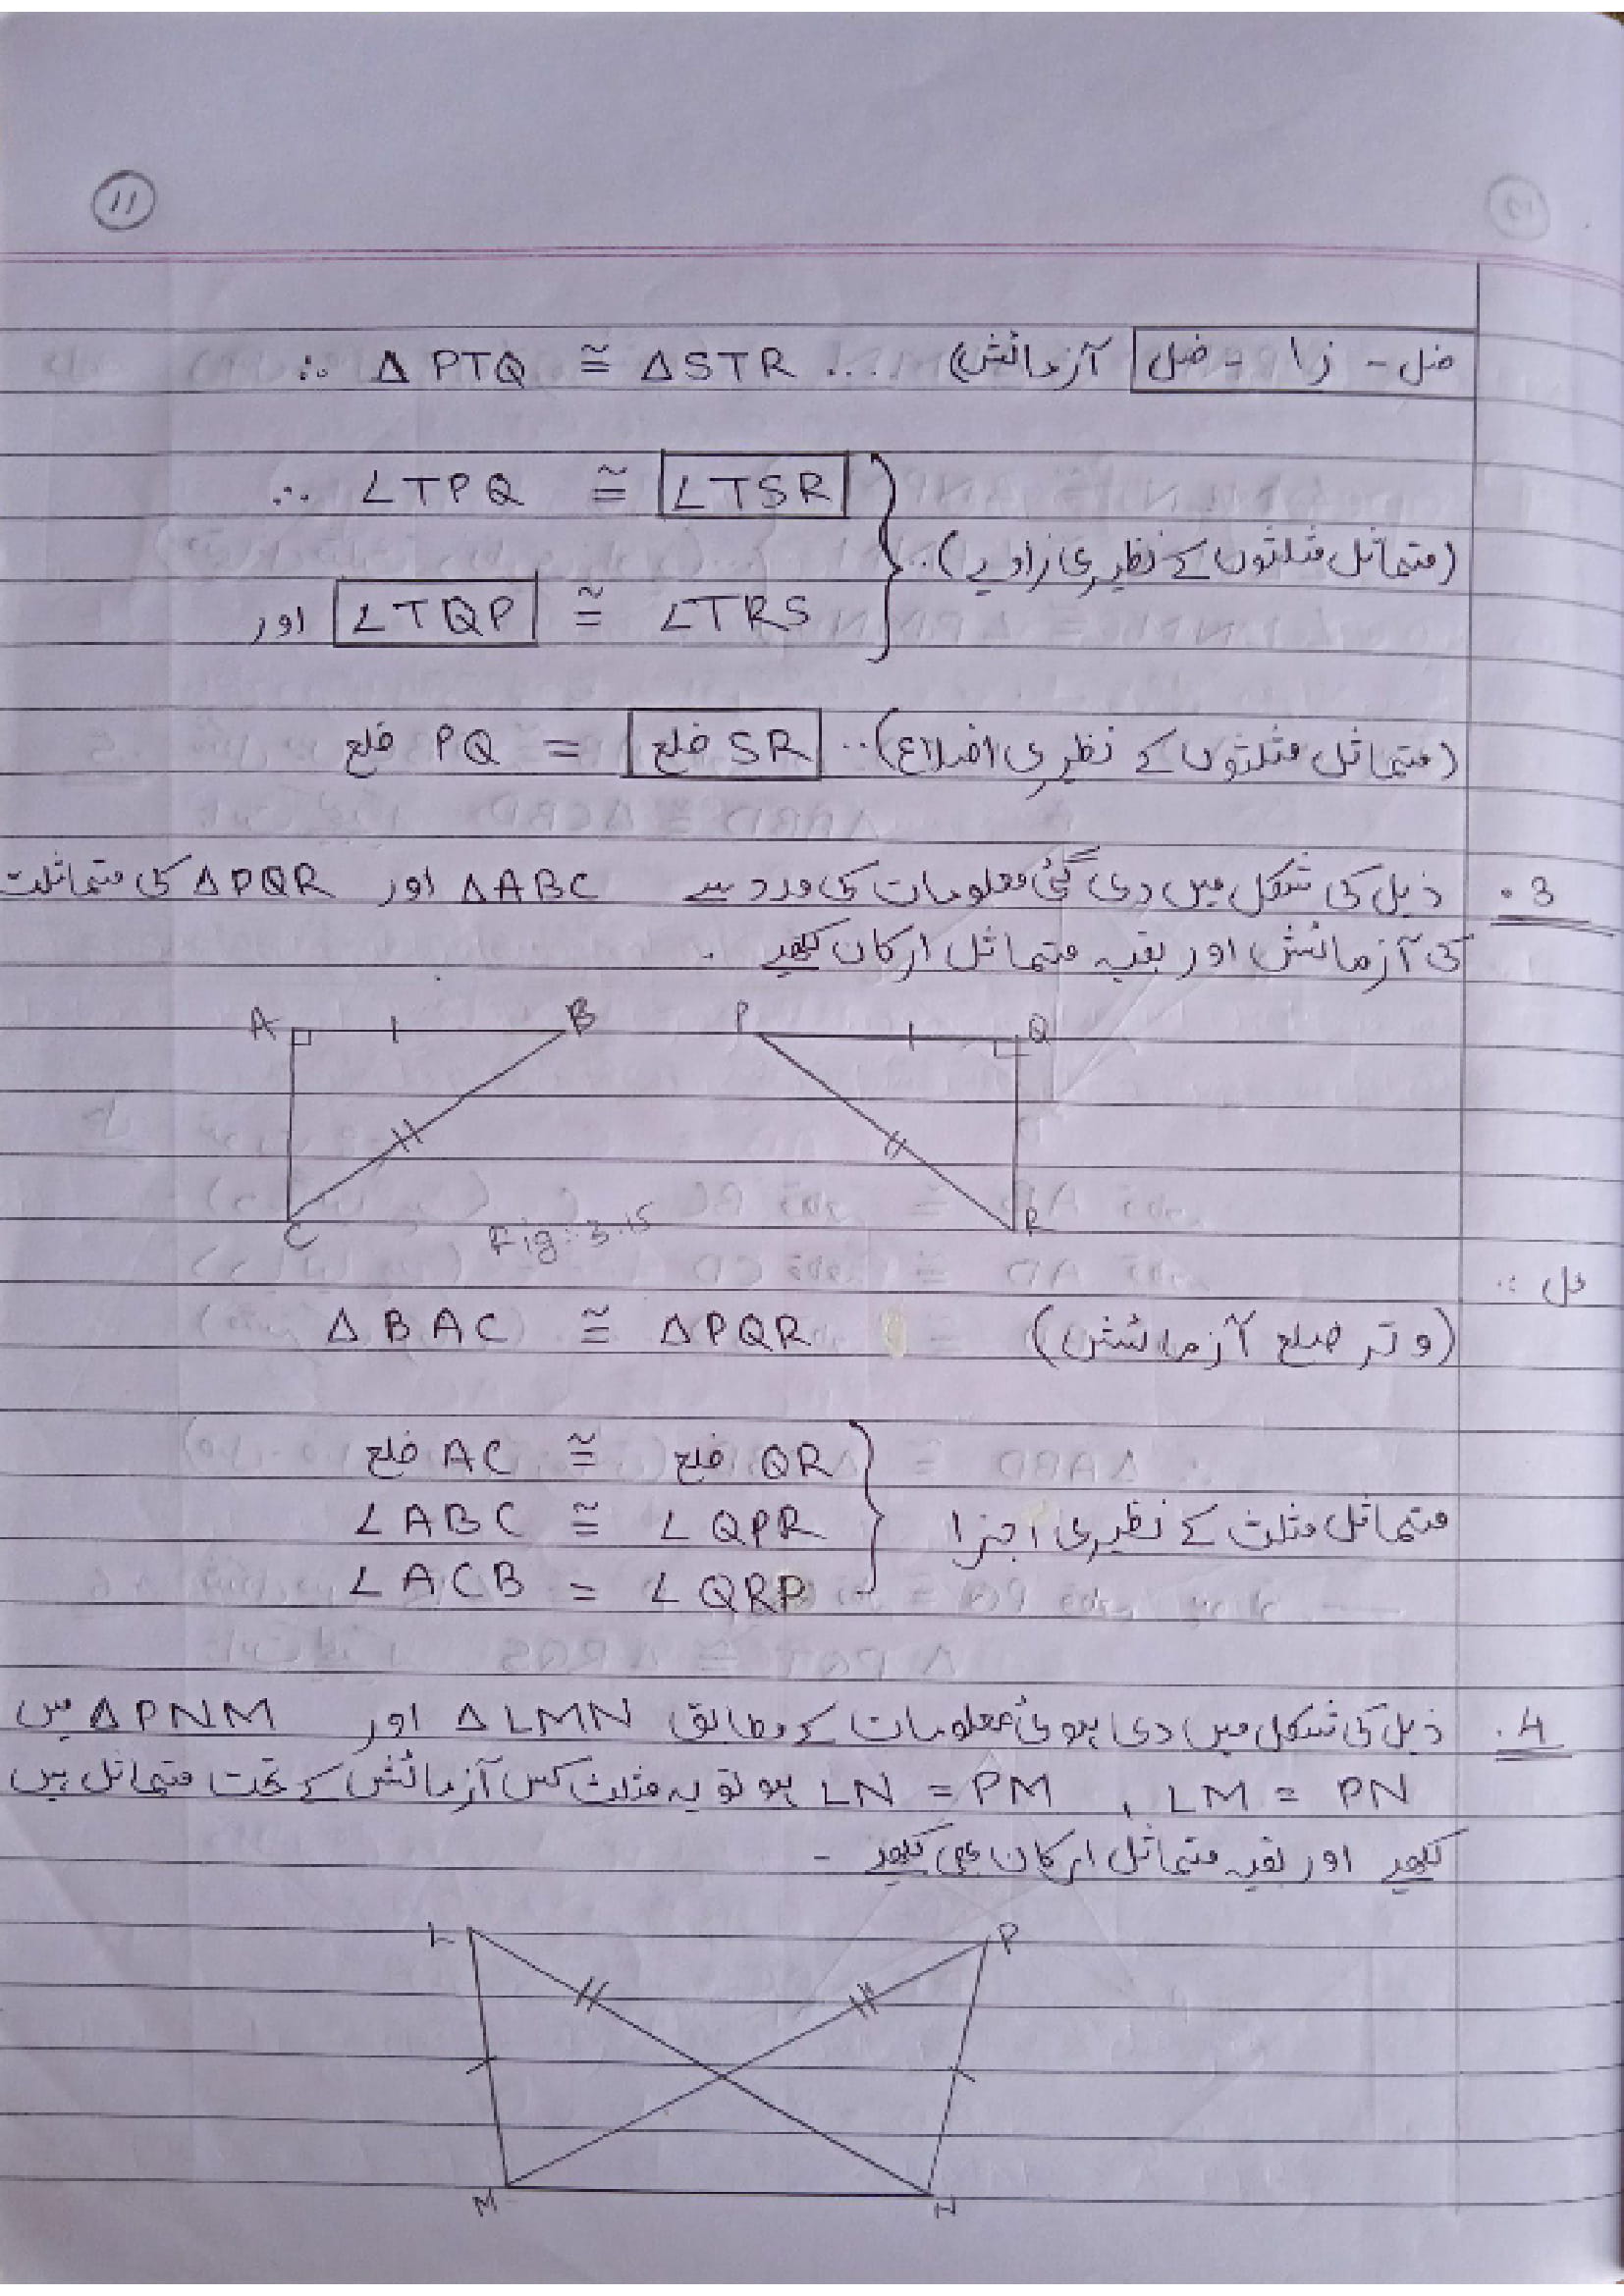 11
∴ Δ PTQ ≅ Δ STR ... (ضل - زا - ضل آزمائش)
∴ ∠TPQ ≅ ∠TSR
(متماثل مثلثوں کے نظیری زاویے)...
اور ∠TQP ≅ ∠TRS
ضلع PQ = ضلع SR ...(متماثل مثلثوں کے نظیری اضلاع)
3. ذیل کی شکل میں دی گئی معلومات کی مدد سے ΔABC اور ΔPQR کی متماثلت
کی آزمائش اور بقیہ متماثل ارکان لکھیے .
A B P Q
C Fig: 3.15 R
حل :
Δ BAC ≅ ΔPQR (وتر ضلع آزمائش)
ضلع AC ≅ ضلع QR
∠ABC ≅ ∠QPR متماثل مثلث کے نظیری اجزا
∠ACB = ∠QRP
4. ذیل کی شکل میں دی ہوئی معلومات کے مطابق ΔLMN اور ΔPNM میں
LM = PN , LN = PM ہو تو یہ مثلث کس آزمائش کے تحت متماثل ہیں
لکھیے اور بقیہ متماثل ارکان بھی لکھیے -
L P
M N